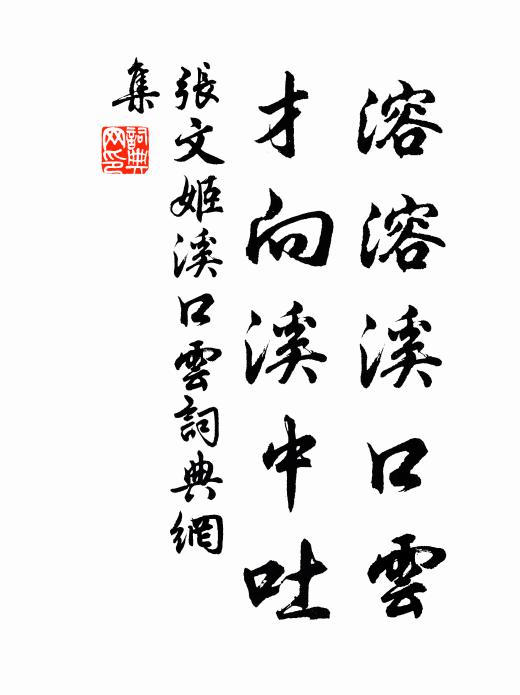 溶溶溪口雲
才向溪中吐
張文姬溪口雲詞典網
集
詞典
网印